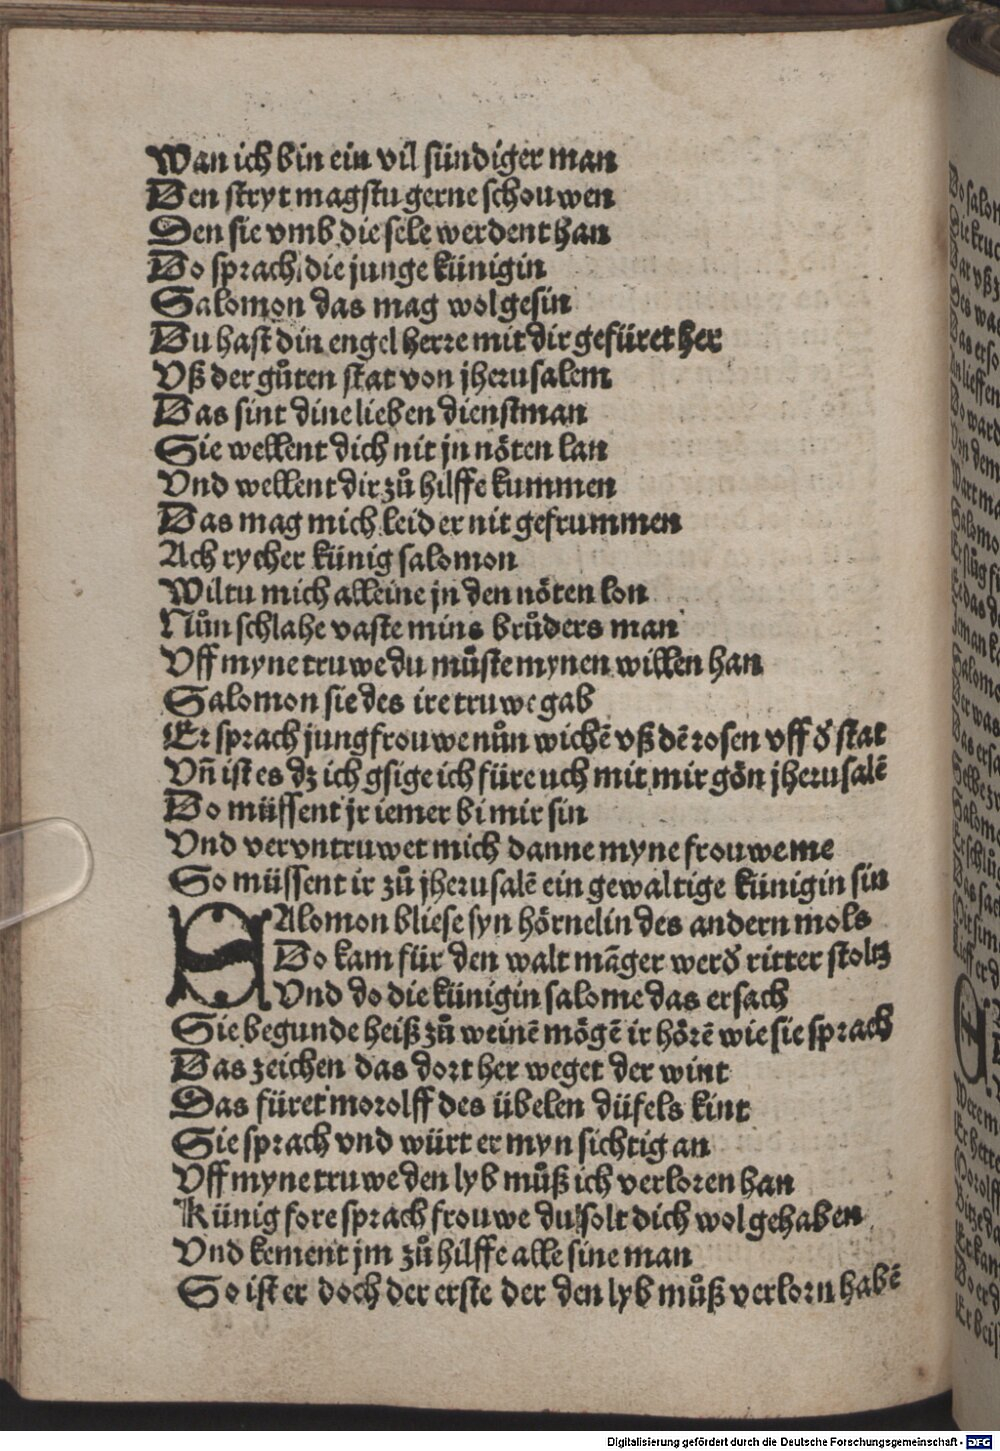 Wan ich bin ein vil sündiger man
Den stryt magstu gerne schouwen
Den sie vmb die sele werdent han
Do sprach die junge künigin
Salomon das mag wol gesin
Du hast din engel herre mit dir gefüret her
Vß der gůten stat von jherusalem
Das sint dine lieben dienstman
Sie wellent dich nit jn nöten lan
Vnd wellent dir zů hilffe kummen
Das mag mich leider nit gefrummen
Ach rycher künig salomon
Wiltu mich alleine jn den nöten lon
Nůn schlahe vaste mins brůders man
Vff myne truwe du můste mynen willen han
Salomon sie des ire truwe gab
Er sprach jungfrouwe nůn wichē vß dē rosen vff d̕ stat
Vn̄ ist es dz ich gsige ich füre uch mit mir gön jherusalē
Do müssent jr iemer bi mir sin
Vnd vervntruwet mich danne myne frouwe me
So müssent ir zů jherusalē ein gewaltige künigin sin
SAlomon bliese syn hörnelin des andern mols
Do kam für den walt māger werd̕ ritter stoltz
Vnd do die künigin salome das ersach
Sie begunde heiß zů weinē mögē ir hörē wie sie sprach
Das zeichen das dort her weget der wint
Das füret morolff des übelen düfels kint
Sie sprach vnd würt er myn sichtig an
Vff myne truwe den lyb můß ich verloren han
Künig fore sprach frouwe du solt dich wol gehaben
Vnd kement jm zů hilffe alle sine man
So ist er doch der erste der den lyb můß verlorn habē
Digitalisierung gefördert durch die Deutsche Forschungsgemeinschaft - DFG